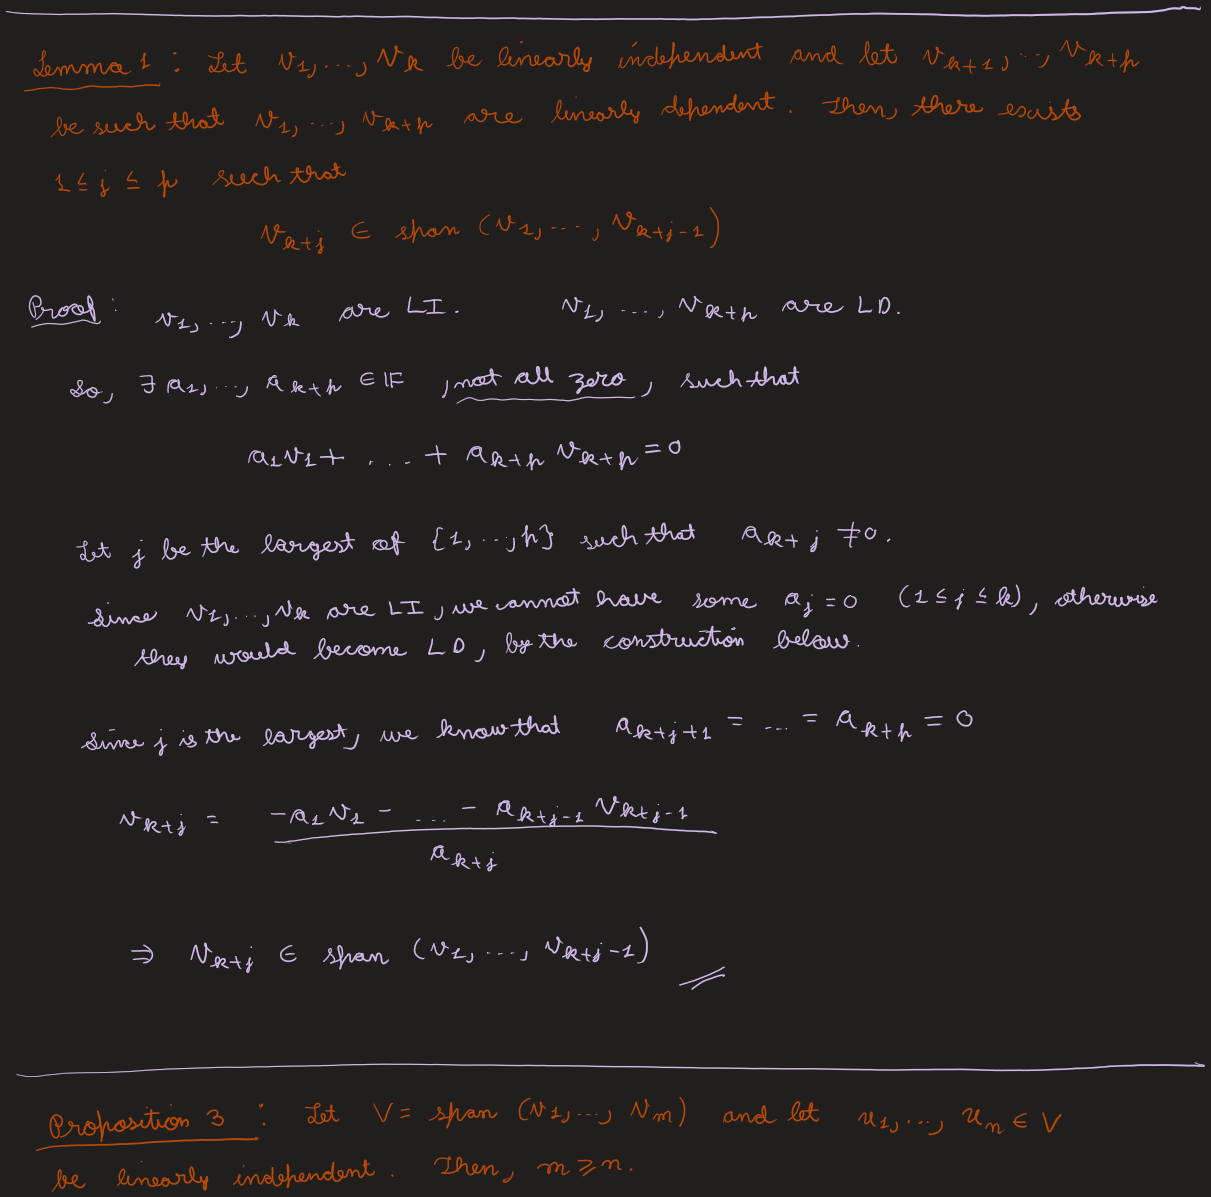 Lemma 1 : Let v₁, ..., vₖ be linearly independent and let vₖ₊₁, ..., vₖ₊ₚ
be such that v₁, ..., vₖ₊ₚ are linearly dependent. Then, there exists
1 ≤ j ≤ p such that
v_{k+j} ∈ span (v₁, ..., v_{k+j-1})
Proof : v₁, ..., vₖ are LI. v₁, ..., vₖ₊ₚ are LD.
So, ∃ a₁, ..., aₖ₊ₚ ∈ 𝔽, not all zero, such that
a₁v₁ + .... + aₖ₊ₚ vₖ₊ₚ = 0
Let j be the largest of {1, ..., p} such that a_{k+j} ≠ 0.
Since v₁, ..., vₖ are LI, we cannot have some a_j = 0 (1 ≤ j ≤ k), otherwise
they would become LD, by the construction below.
Since j is the largest, we know that a_{k+j+1} = ... = a_{k+p} = 0
v_{k+j} = (-a₁v₁ - .... - a_{k+j-1} v_{k+j-1}) / a_{k+j}
⇒ v_{k+j} ∈ span (v₁, ..., v_{k+j-1})
Proposition 3 : Let V = span (v₁, ..., vₘ) and let u₁, ..., uₙ ∈ V
be linearly independent. Then, m ≥ n.